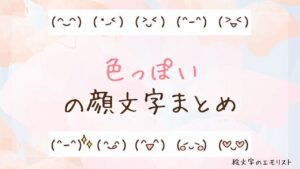 (^‿^) (・᷄‿<) (>‿<) (^−^) (>ڡ<)
色っぽい
の顔文字まとめ
(^−^)✨ (^‿^) (^▽^) (◡‿◡) (♡‿♡)
絵文字のエモリスト